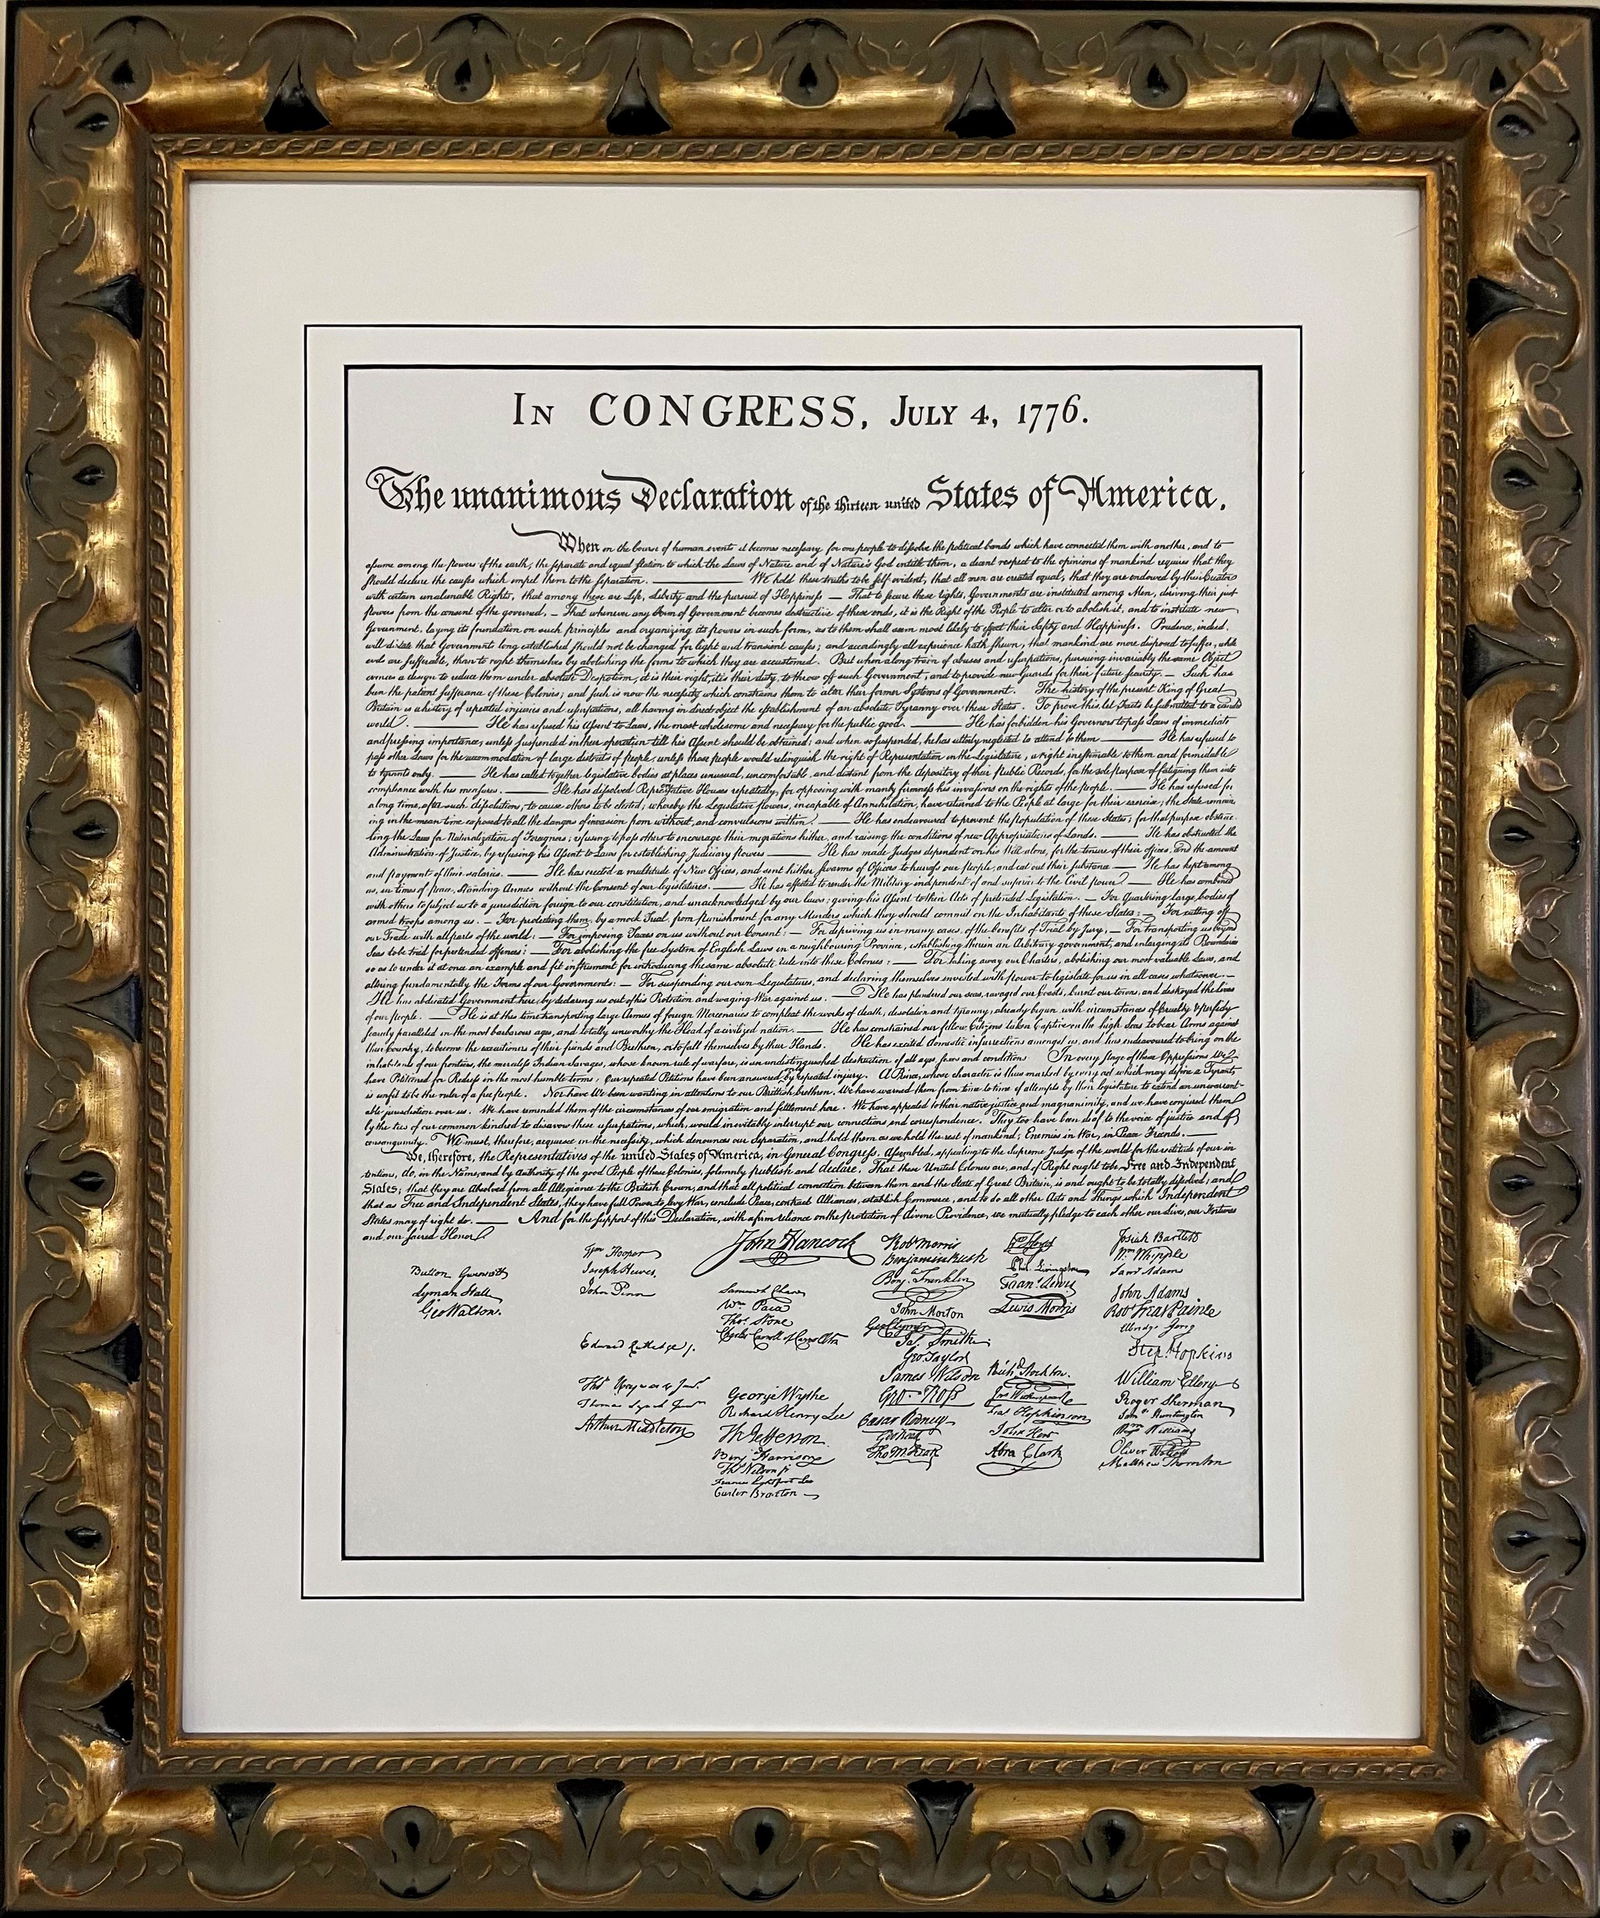 IN CONGRESS, JULY 4, 1776.
The unanimous Declaration of the thirteen united States of America,
When in the Course of human events it becomes necessary for one people to dissolve the political bands which have connected them with another, and to
assume among the powers of the earth, the separate and equal station to which the Laws of Nature and of Nature's God entitle them, a decent respect to the opinions of mankind requires that they
should declare the causes which impel them to the separation. — We hold these truths to be self-evident, that all men are created equal, that they are endowed by their Creator
with certain unalienable Rights, that among these are Life, Liberty and the pursuit of Happiness — That to secure these rights, Governments are instituted among Men, deriving their just
powers from the consent of the governed, — That whenever any Form of Government becomes destructive of these ends, it is the Right of the People to alter or to abolish it, and to institute new
Government, laying its foundation on such principles and organizing its powers in such form, as to them shall seem most likely to effect their Safety and Happiness. Prudence, indeed,
will dictate that Governments long established should not be changed for light and transient causes; and accordingly all experience hath shewn, that mankind are more disposed to suffer, while
evils are sufferable, than to right themselves by abolishing the forms to which they are accustomed. But when a long train of abuses and usurpations, pursuing invariably the same Object
evinces a design to reduce them under absolute Despotism, it is their right, it is their duty, to throw off such Government, and to provide new Guards for their future security. — Such has
been the patient sufferance of these Colonies; and such is now the necessity which constrains them to alter their former Systems of Government. The history of the present King of Great
Britain is a history of repeated injuries and usurpations, all having in direct object the establishment of an absolute Tyranny over these States. To prove this, let Facts be submitted to a candid
world. — He has refused his Assent to Laws, the most wholesome and necessary for the public good. — He has forbidden his Governors to pass Laws of immediate
and pressing importance, unless suspended in their operation till his Assent should be obtained; and when so suspended, he has utterly neglected to attend to them — He has refused to
pass other Laws for the accommodation of large districts of people, unless those people would relinquish the right of Representation in the Legislature, a right inestimable to them and formidable
to tyrants only. — He has called together legislative bodies at places unusual, uncomfortable, and distant from the depository of their public Records, for the sole purpose of fatiguing them into
compliance with his measures. — He has dissolved Representative Houses repeatedly, for opposing with manly firmness his invasions on the rights of the people. — He has refused for
a long time, after such dissolutions, to cause others to be elected; whereby the Legislative powers, incapable of Annihilation, have returned to the People at large for their exercise; the State remain-
ing in the mean time exposed to all the dangers of invasion from without, and convulsions within. — He has endeavoured to prevent the population of these States; for that purpose obstruc-
ting the Laws for Naturalization of Foreigners; refusing to pass others to encourage their migrations hither, and raising the conditions of new Appropriations of Lands. — He has obstructed the
Administration of Justice, by refusing his Assent to Laws for establishing Judiciary powers — He has made Judges dependent on his Will alone, for the tenure of their offices, and the amount
and payment of their salaries. — He has erected a multitude of New Offices, and sent hither swarms of Officers to harrass our people, and eat out their substance — He has kept among
us, in times of peace, Standing Armies without the Consent of our legislatures. — He has affected to render the Military independent of and superior to the Civil power. — He has combined
with others to subject us to a jurisdiction foreign to our constitution, and unacknowledged by our laws; giving his Assent to their Acts of pretended Legislation: — For Quartering large bodies of
armed troops among us: — For protecting them, by a mock Trial, from punishment for any Murders which they should commit on the Inhabitants of these States: — For cutting off
our Trade with all parts of the world: — For imposing Taxes on us without our Consent: — For depriving us in many cases, of the benefits of Trial by Jury; — For transporting us beyond
Seas to be tried for pretended offences: — For abolishing the free System of English Laws in a neighbouring Province, establishing therein an Arbitrary government, and enlarging its Boundaries
so as to render it at once an example and fit instrument for introducing the same absolute rule into these Colonies: — For taking away our Charters, abolishing our most valuable Laws, and
altering fundamentally the Forms of our Governments: — For suspending our own Legislatures, and declaring themselves invested with power to legislate for us in all cases whatsoever. —
He has abdicated Government here, by declaring us out of his Protection and waging War against us. — He has plundered our seas, ravaged our Coasts, burnt our towns, and destroyed the lives
of our people. — He is at this time transporting large Armies of foreign Mercenaries to compleat the works of death, desolation and tyranny, already begun with circumstances of Cruelty & perfidy
scarcely paralleled in the most barbarous ages, and totally unworthy the Head of a civilized nation. — He has constrained our fellow Citizens taken Captive on the high Seas to bear Arms against
their Country, to become the executioners of their friends and Brethren, or to fall themselves by their Hands. He has excited domestic insurrections amongst us, and has endeavoured to bring on the
inhabitants of our frontiers, the merciless Indian Savages, whose known rule of warfare, is an undistinguished destruction of all ages, sexes and conditions In every stage of these Oppressions We
have Petitioned for Redress in the most humble terms; Our repeated Petitions have been answered by repeated injury. A Prince, whose character is thus marked by every act which may define a Tyrant,
is unfit to be the ruler of a free people. Nor have We been wanting in attentions to our Brittish brethren. We have warned them from time to time of attempts by their legislature to extend an unwarrant-
able jurisdiction over us. We have reminded them of the circumstances of our emigration and settlement here. We have appealed to their native justice and magnanimity, and we have conjured them
by the ties of our common kindred to disavow these usurpations, which, would inevitably interrupt our connections and correspondence. They too have been deaf to the voice of justice and of
consanguinity. We must, therefore, acquiesce in the necessity, which denounces our Separation, and hold them, as we hold the rest of mankind, Enemies in War, in Peace Friends. —
We, therefore, the Representatives of the united States of America, in General Congress, Assembled, appealing to the Supreme Judge of the world for the rectitude of our in-
tentions, do, in the Name, and by Authority of the good People of these Colonies, solemnly publish and declare, That these United Colonies are, and of Right ought to be Free and Independent
States; that they are Absolved from all Allegiance to the British Crown, and that all political connection between them and the State of Great Britain, is and ought to be totally dissolved; and
that as Free and Independent States, they have full Power to levy War, conclude Peace, contract Alliances, establish Commerce, and to do all other Acts and Things which Independent
States may of right do. — And for the support of this Declaration, with a firm reliance on the protection of divine Providence, we mutually pledge to each other our Lives, our Fortunes
and our sacred Honor.
Button Gwinnett
Lyman Hall
Geo Walton.
Wm Hooper
Joseph Hewes,
John Penn
Edward Rutledge /.
Thos Heyward Junr.
Thomas Lynch Junr.
Arthur Middleton
John Hancock
Samuel Chase
Wm Paca
Thos. Stone
Charles Carroll of Carrollton
George Wythe
Richard Henry Lee
Th Jefferson
Benja Harrison
Thos Nelson jr.
Francis Lightfoot Lee
Carter Braxton
Robt Morris
Benjamin Rush
Benja. Franklin
John Morton
Geo Clymer
Jas. Smith
Geo. Taylor
James Wilson
Geo. Ross
Caesar Rodney
Geo Read
Tho M:Kean
Wm Floyd
Phil. Livingston
Frans. Lewis
Lewis Morris
Richd. Stockton
Jno Witherspoon
Fras. Hopkinson
John Hart
Abra Clark
Josiah Bartlett
Wm Whipple
Saml Adams
John Adams
Robt Treat Paine
Elbridge Gerry
Step. Hopkins
William Ellery
Roger Sherman
Saml Huntington
Wm Williams
Oliver Wolcott
Matthew Thornton